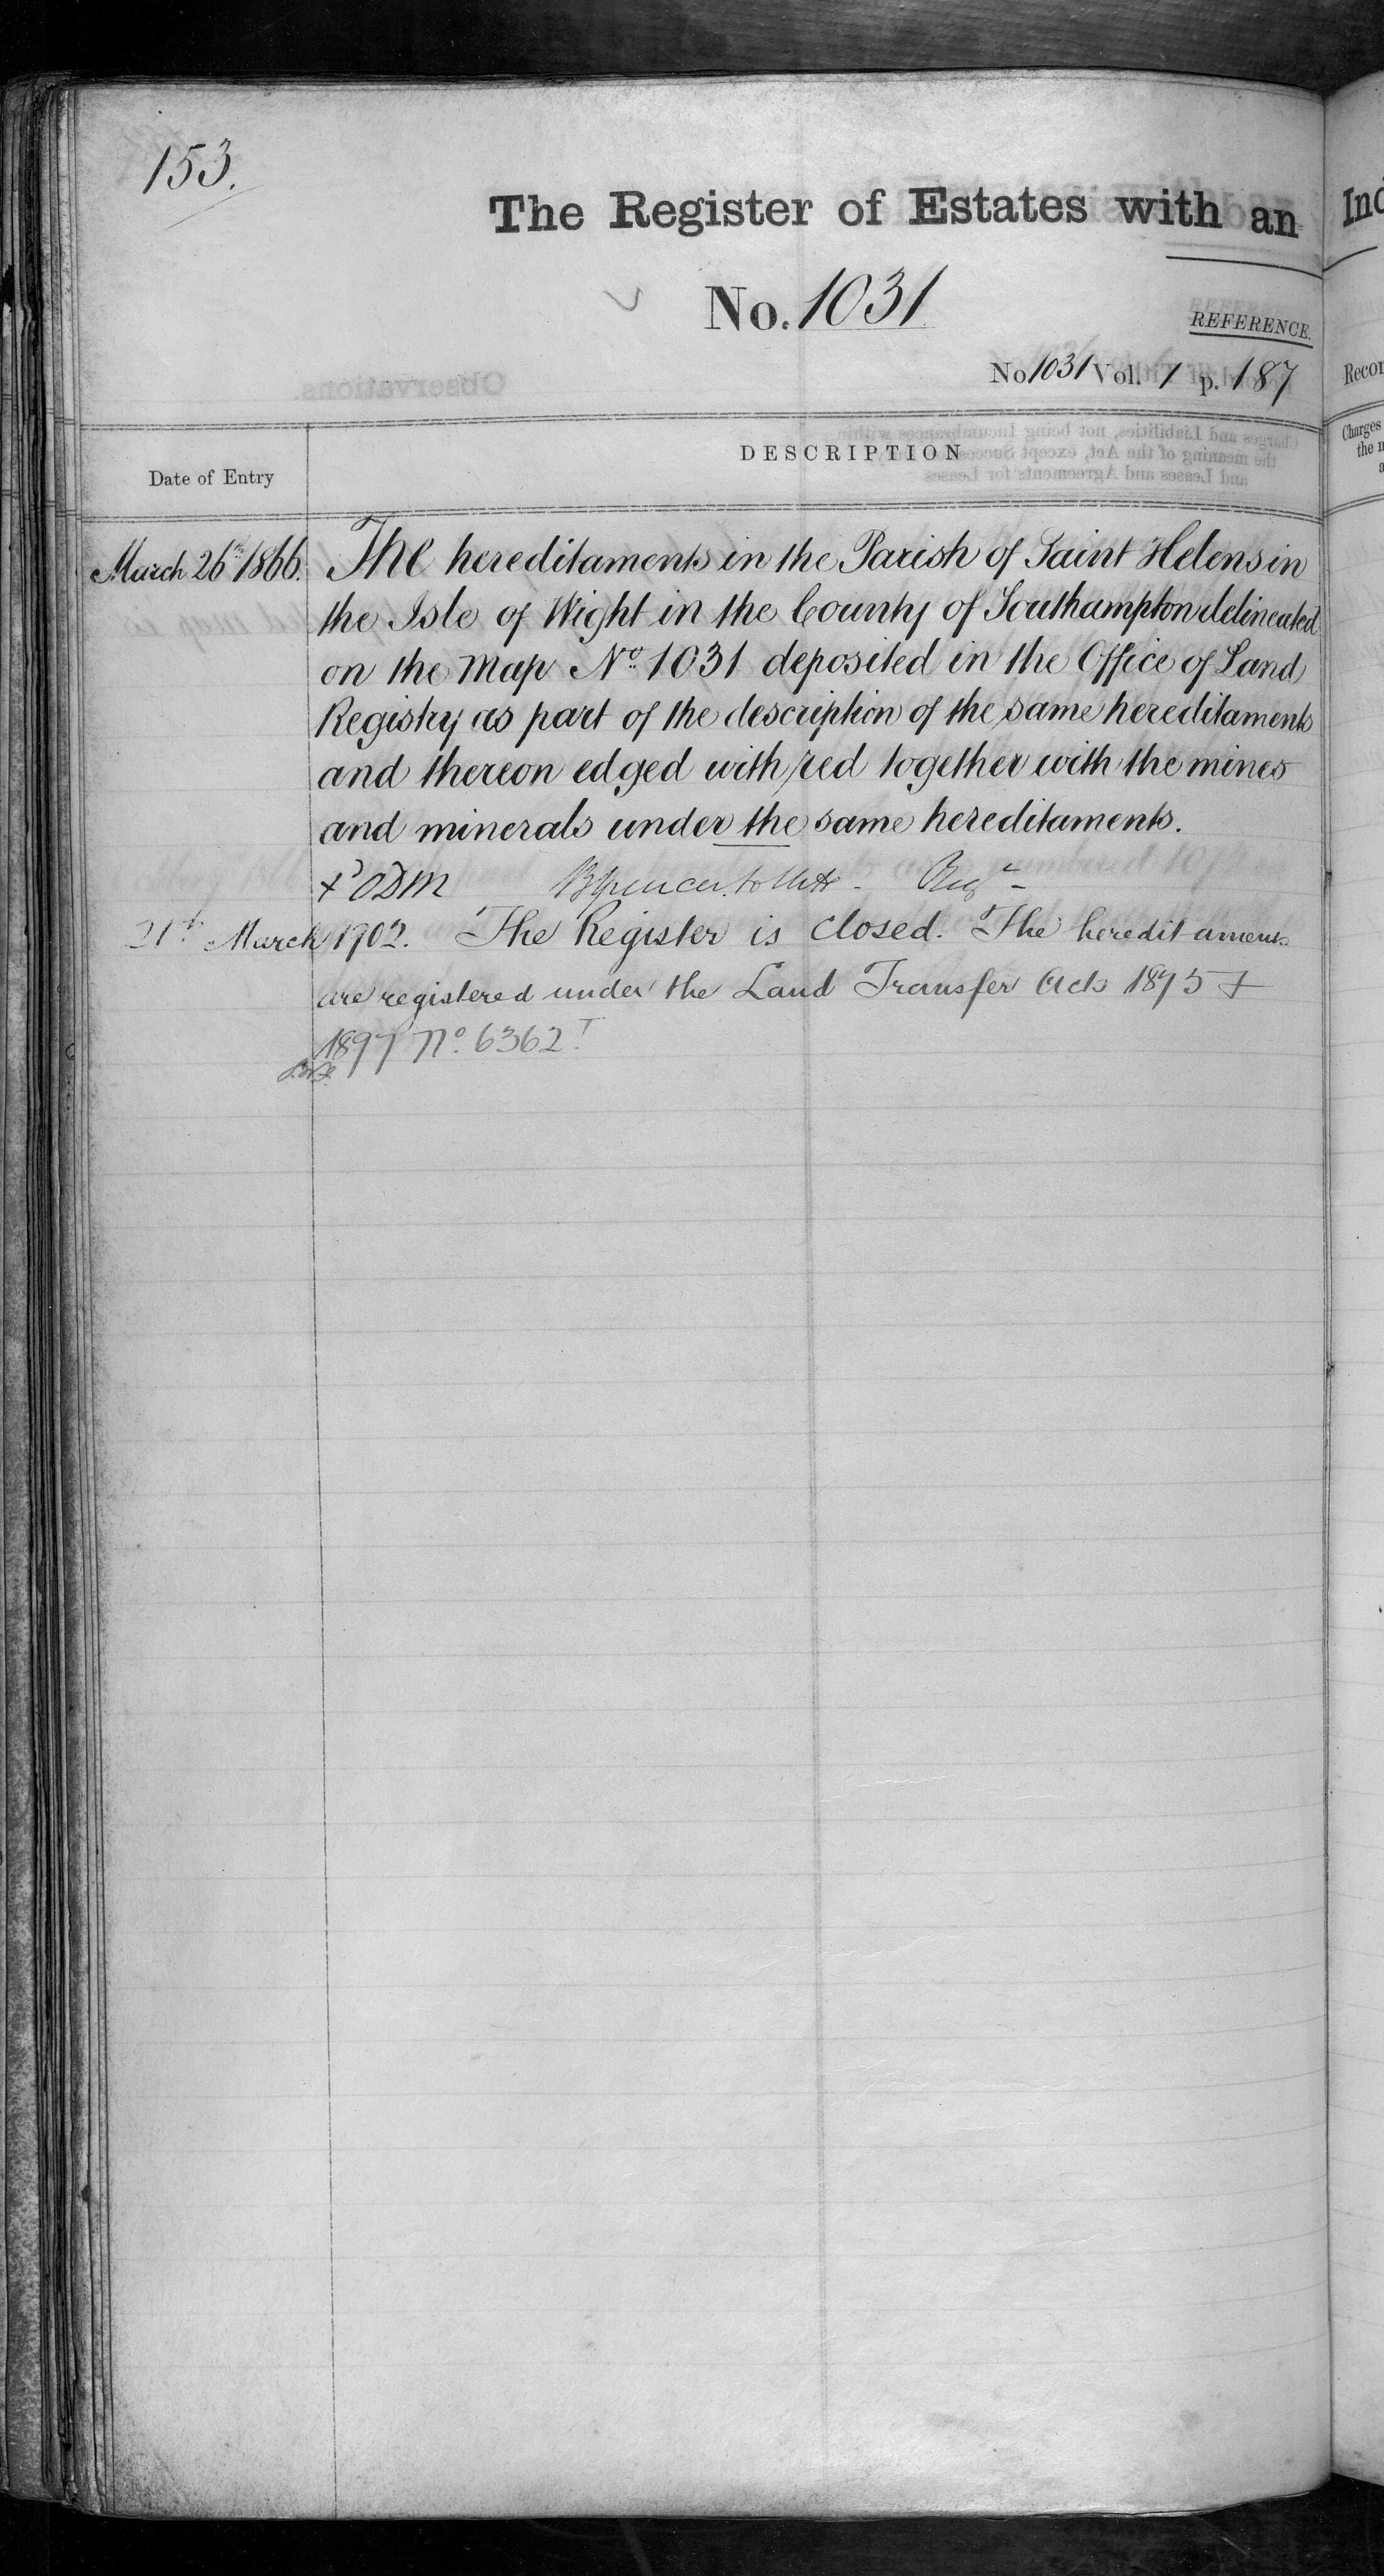 153.
The Register of Estates with an
No. 1031
REFERENCE.
No 1031 Vol. 1 p. 187
Date of Entry
DESCRIPTION
March 26th 1866. The hereditaments in the Parish of Saint Helens in
the Isle of Wight in the County of Southampton delineated
on the Map No. 1031 deposited in the Office of Land
Registry as part of the description of the same hereditaments
and thereon edged with red together with the mines
and minerals under the same hereditaments.
Regr
21st March 1902. The Register is closed. The hereditaments
are registered under the Land Transfer Acts 1875 &
1897 No. 6362
Ind
Recor
Charges
the m
a